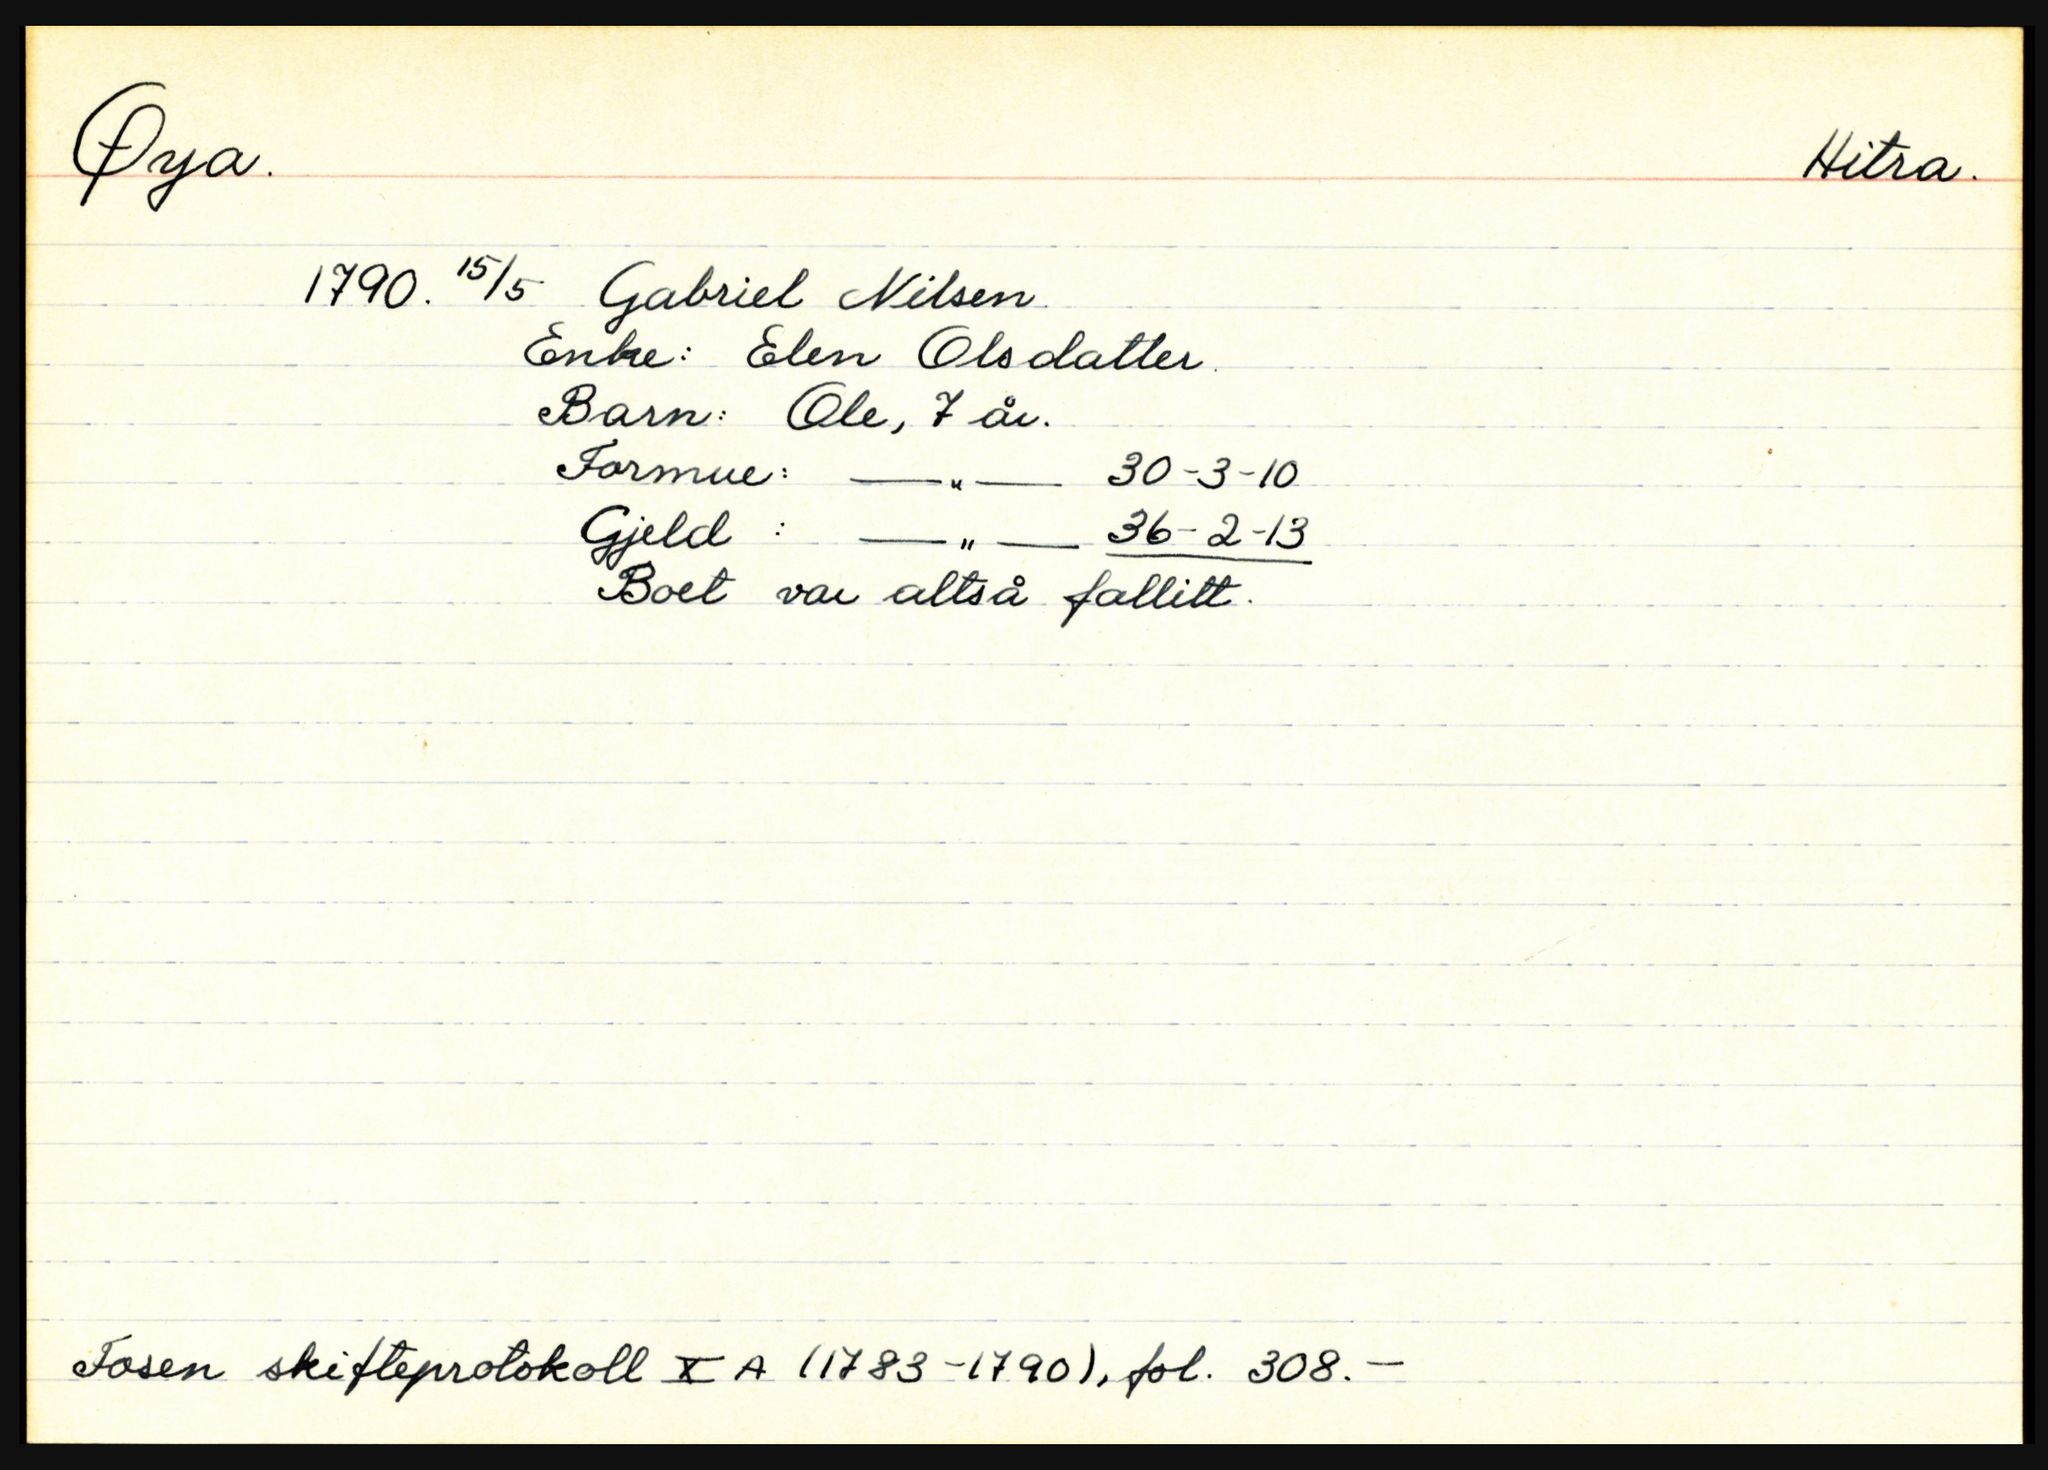 Øya. Hitra.
1790. 15/5 Gabriel Nilsen.
Enke: Elen Olsdatter.
Barn: Ole, 7 år.
Formue: —„— 30-3-10
Gjeld : —„— 36-2-13
Boet var altså fallitt.
Fosen skifteprotokoll X A (1783-1790), fol. 308.—